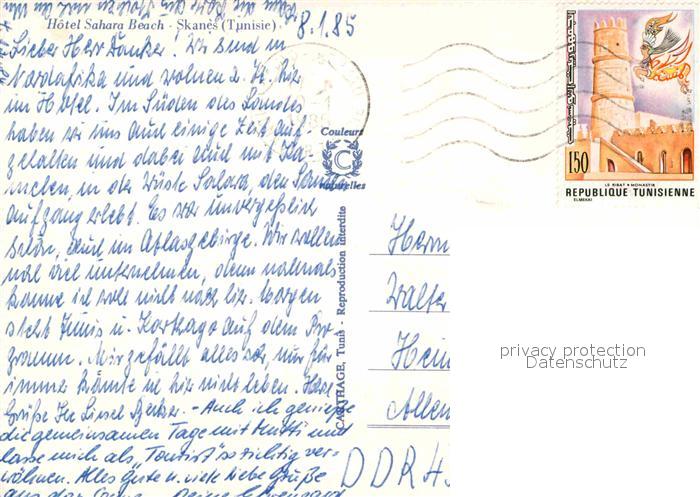 Hôtel Sahara Beach - Skanès (Tunisie)
8.1.85
Lieber Herr Danker! Wir sind in
Nordafrika und wohnen z. Zt. hier
im Hotel. Im Süden des Landes
haben wir uns auch einige Zeit auf-
gehalten und dabei auch mit Ka-
melen in der Wüste Sahara, den Sonnen
aufgang erlebt. Es war unvergeßlich
schön, auch im Atlasgebirge. Wir wollen
mal viel unternehmen, denn nochmals
komme ich wohl nicht noch hier. Morgen
steht Tunis u. Karthago auf dem Pro-
gramm. Mir gefällt alles sehr, nur für
immer könnte ich hier nicht leben. Herzl.
Grüße Ihr Liesel - Auch ich genieße
die gemeinsamen Tage mit Mutti und
lasse mich als "Tourist" so richtig ver-
wöhnen. Alles Gute u. viele liebe Grüße
Couleurs
C
naturelles
CARTHAGE, Tunis - Reproduction interdite
150
LE RIBAT • MONASTIR
REPUBLIQUE TUNISIENNE
ELMEKKI
Herrn
Walter
Hein
Allen
DDR 43
privacy protection
Datenschutz